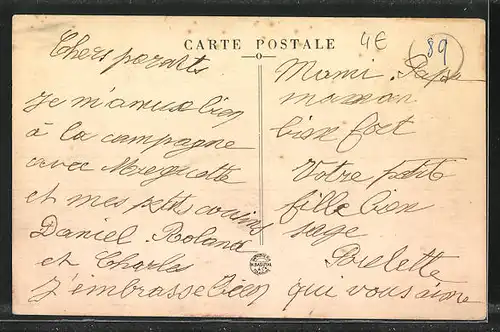 CARTE POSTALE
4€
89
Chers parents
Je m'amuse bien
à la campagne
avec Marguette
et mes petits cousins
Daniel. Roland
et Charles
J'embrasse bien
Mami. Papa
maman
bien fort
Votre petite
fille bien
sage
Arlette
qui vous aime